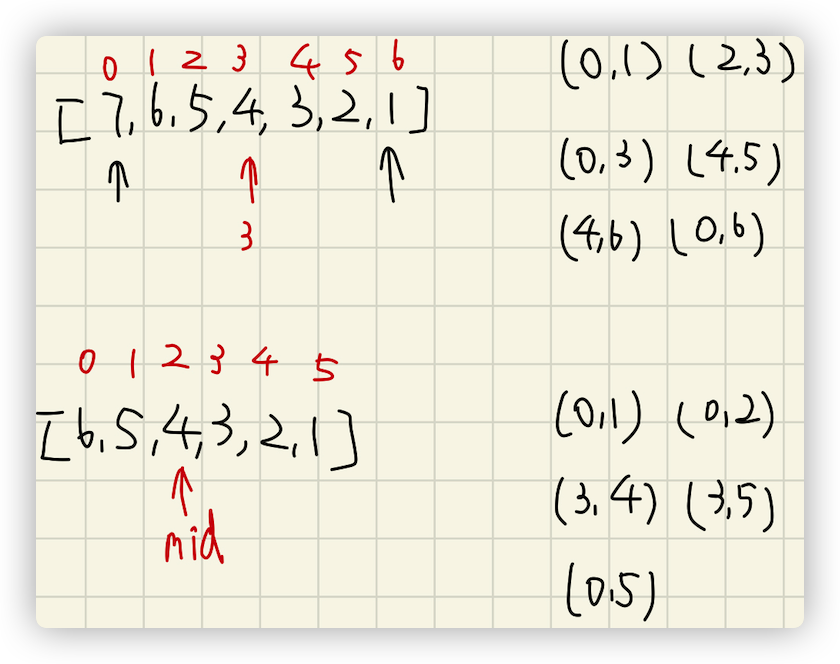 0 1 2 3 4 5 6
[7,6,5,4,3,2,1]
3
(0,1) (2,3)
(0,3) (4,5)
(4,6) (0,6)
0 1 2 3 4 5
[6,5,4,3,2,1]
mid
(0,1) (0,2)
(3,4) (3,5)
(0,5)